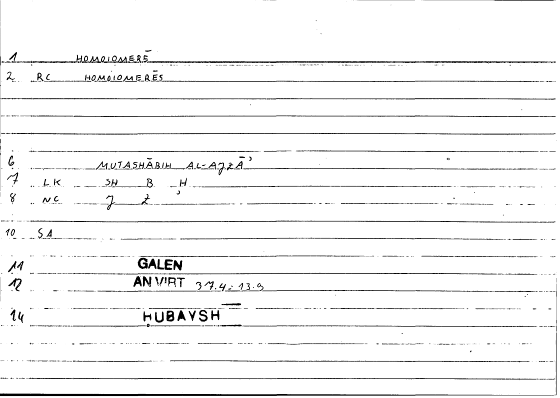 1 HOMOIOMERĒ
2 RC HOMOIOMERĒS
6 MUTASHĀBIH AL-AJZĀʾ
7 LK SH B H
8 NC J Z ʾ
10 SA
11 GALEN
12 AN VIRT 37.4-13.9
14 HUBAYSH